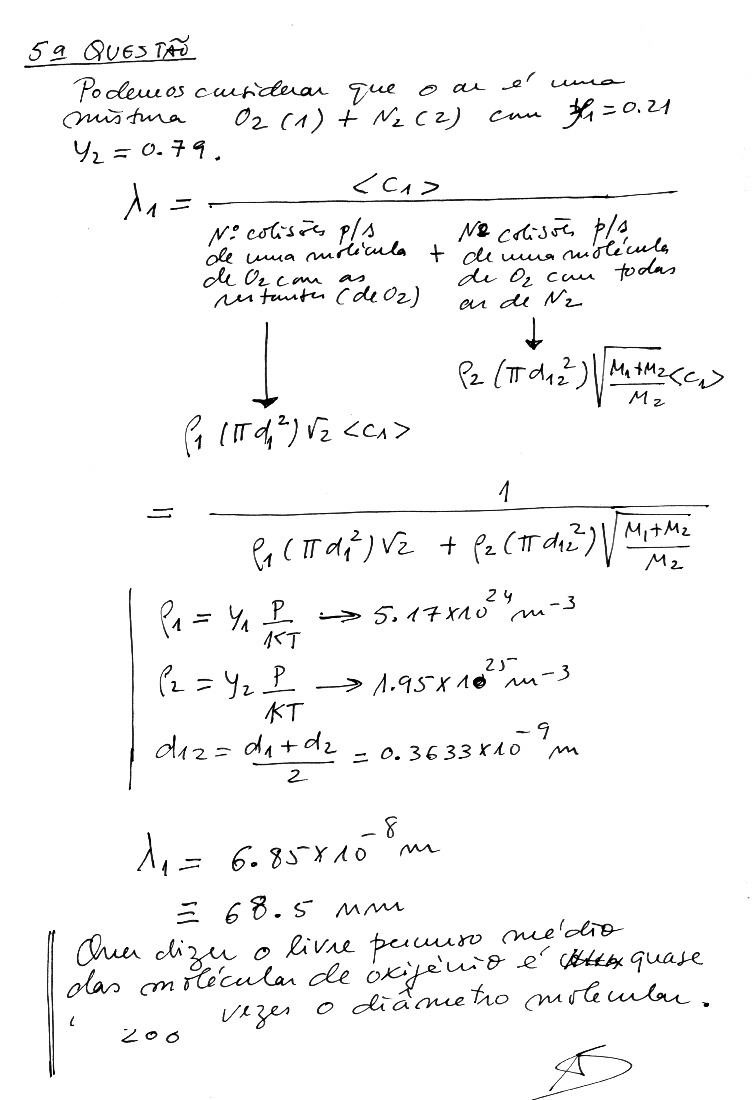 5ª QUESTÃO
Podemos considerar que o ar é uma
mistura O2 (1) + N2 (2) com y1 = 0.21
y2 = 0.79.
λ1 = <c1> / (
Nº colisões p/s de uma molécula de O2 com as restantes (de O2) + Nº colisões p/s de uma molécula de O2 com todas as de N2)
ρ2 (π d12²) √((M1+M2)/M2) <c1>
ρ1 (π d1²) √2 <c1>
= 1 / (ρ1 (π d1²) √2 + ρ2 (π d12²) √((M1+M2)/M2))
ρ1 = y1 P/KT → 5.17×10^24 m^-3
ρ2 = y2 P/KT → 1.95×10^25 m^-3
d12 = (d1 + d2)/2 = 0.3633×10^-9 m
λ1 = 6.85×10^-8 m
≡ 68.5 nm
Quer dizer o livre percurso médio
das moléculas de oxigénio é quase
200 vezes o diâmetro molecular.